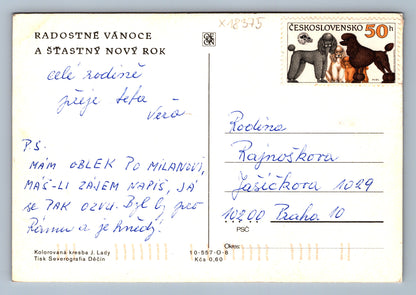 x 18375
RADOSTNÉ VÁNOCE
A ŠŤASTNÝ NOVÝ ROK
ČESKOSLOVENSKO 50h
celé rodině
přeje teta
Věra
PS.
MÁM OBLEK PO MILANOVI,
MÁŠ-LI ZÁJEM NAPIŠ, JÁ
SE PAK OZVU. Byl by pro
a je hnědý!
Rodina
Rajnoškova
Jašíčkova 1029
10200 Praha 10
PSČ
Okres:
Kolorovaná kresba J. Lady
Tisk Severografia Děčín
10-557-U-8
Kčs 0,60